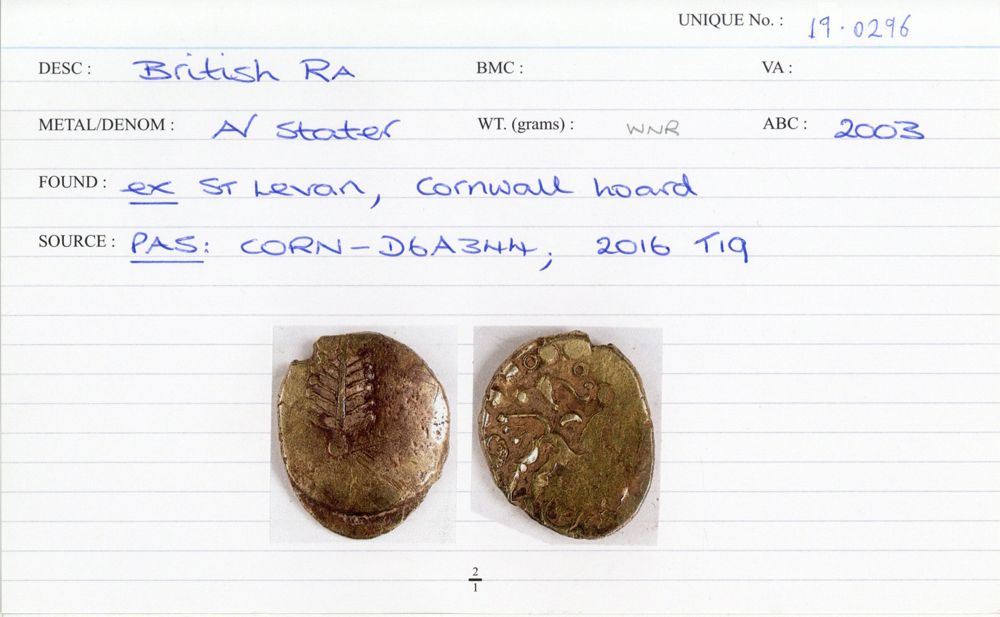 UNIQUE No. : 19·0296
DESC : British RA BMC : VA :
METAL/DENOM : AV Stater WT. (grams) : WNR ABC : 2003
FOUND : ex St Levan, Cornwall hoard
SOURCE : PAS: CORN-D6A344; 2016 T19
2
1